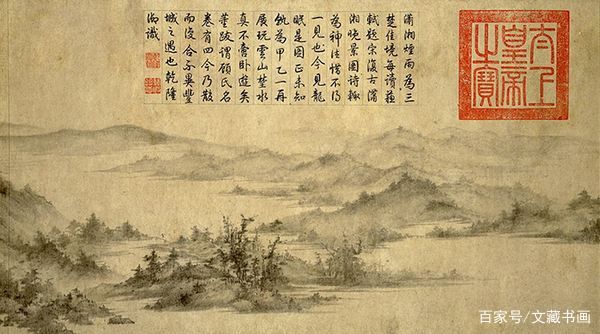 瀟湘煙雨為三
楚佳境每讀蘓
軾題宋復古瀟
湘晚景圖詩輒
為神注惜不得
一見也今見龍
眠是圖正未知
孰為甲乙一再
展玩雲山楚水
真不啻臥遊矣
董跋謂顧氏名
卷有四今乃散
而復合亦異豐
城之遇也乾隆
御識
太上
皇帝
之寶
百家号/文藏书画